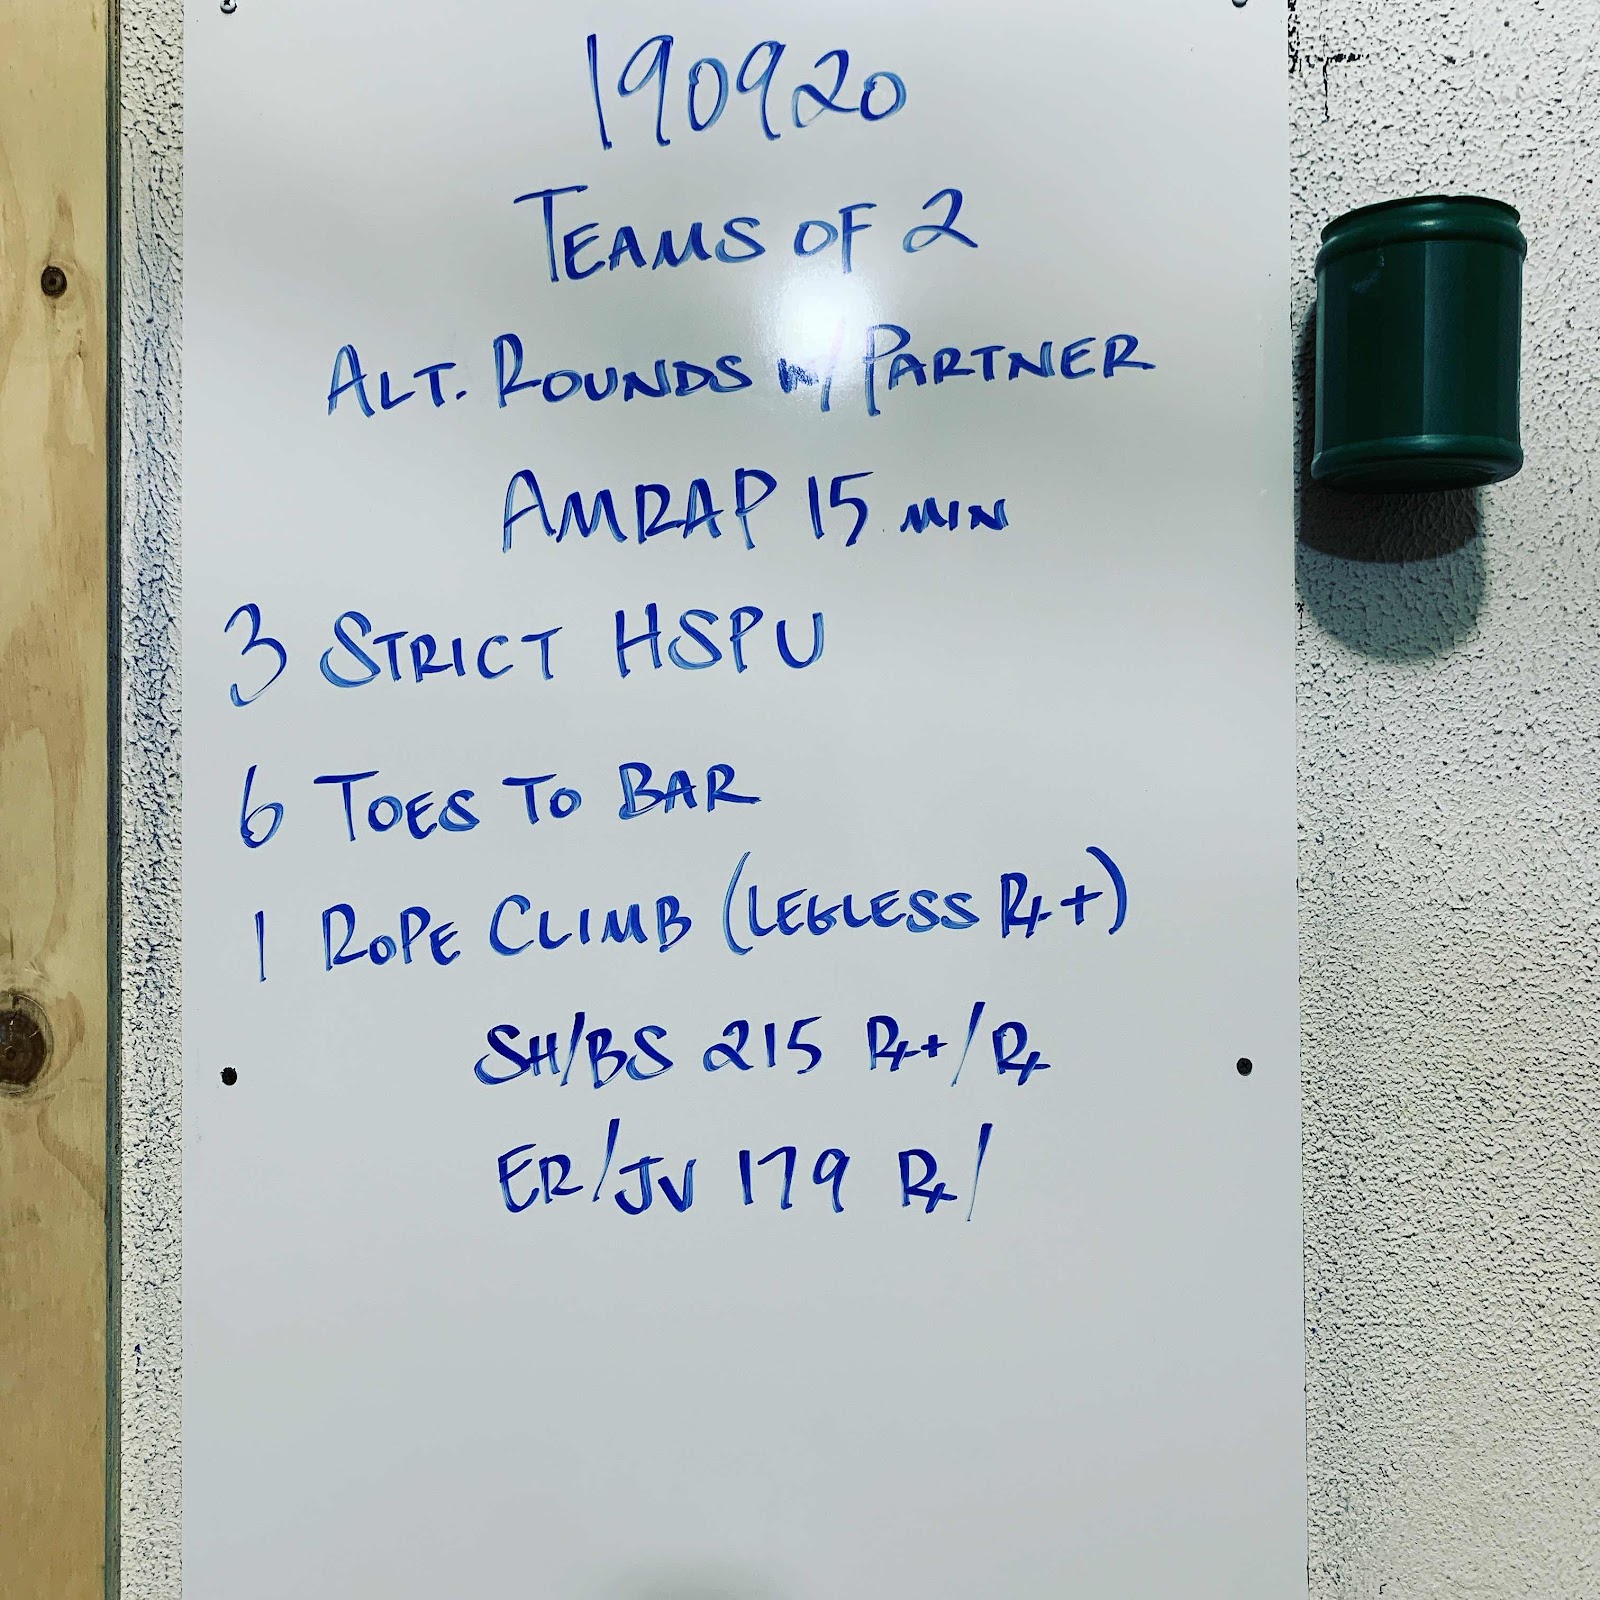 190920
TEAMS OF 2
ALT. ROUNDS W/ PARTNER
AMRAP 15 MIN
3 STRICT HSPU
6 TOES TO BAR
1 ROPE CLIMB (LEGLESS Rx+)
SH/BS 215 Rx+/Rx
ER/JV 179 Rx/